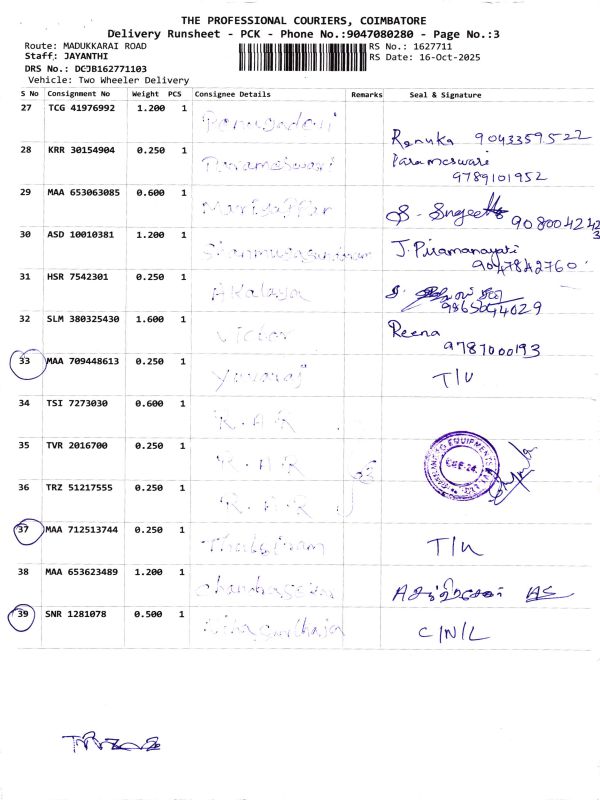 THE PROFESSIONAL COURIERS, COIMBATORE
Delivery Runsheet - PCK - Phone No.:9047080280 - Page No.:3
Route: MADUKKARAI ROAD
RS No.: 1627711
Staff: JAYANTHI
RS Date: 16-Oct-2025
DRS No.: DCJB162771103
Vehicle: Two Wheeler Delivery
S No Consignment No Weight PCS Consignee Details Remarks Seal & Signature
27 TCG 41976992 1.200 1
Renuka 9043359522
28 KRR 30154904 0.250 1 Parameswari Parameswari
9789101952
29 MAA 653063085 0.600 1 Mariyappan
30 ASD 10010381 1.200 1 Shanmugasundaram
9047842760
31 HSR 7542301 0.250 1 Akalaya
9865044029
32 SLM 380325430 1.600 1 Victor Reena
9787000193
33 MAA 709448613 0.250 1 Yuvaraj T/U
34 TSI 7273030 0.600 1 R.A.R
35 TVR 2016700 0.250 1 R.A.R
36 TRZ 51217555 0.250 1 R.A.R
37 MAA 712513744 0.250 1 T/U
38 MAA 653623489 1.200 1
39 SNR 1281078 0.500 1 C/N/L